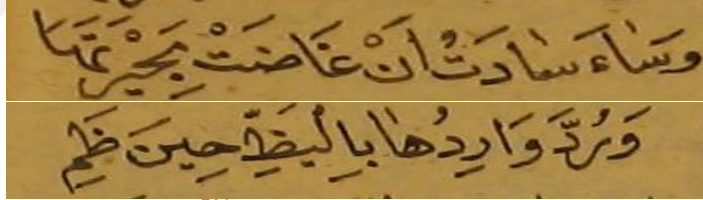 وَسَاءَ سَادَتُ اَنْ غَاضَتْ بُحَيْرَتُهَا
وَرُدَّ وَارِدُهَا بِالْغَيْظِ حِينَ ظَمِ